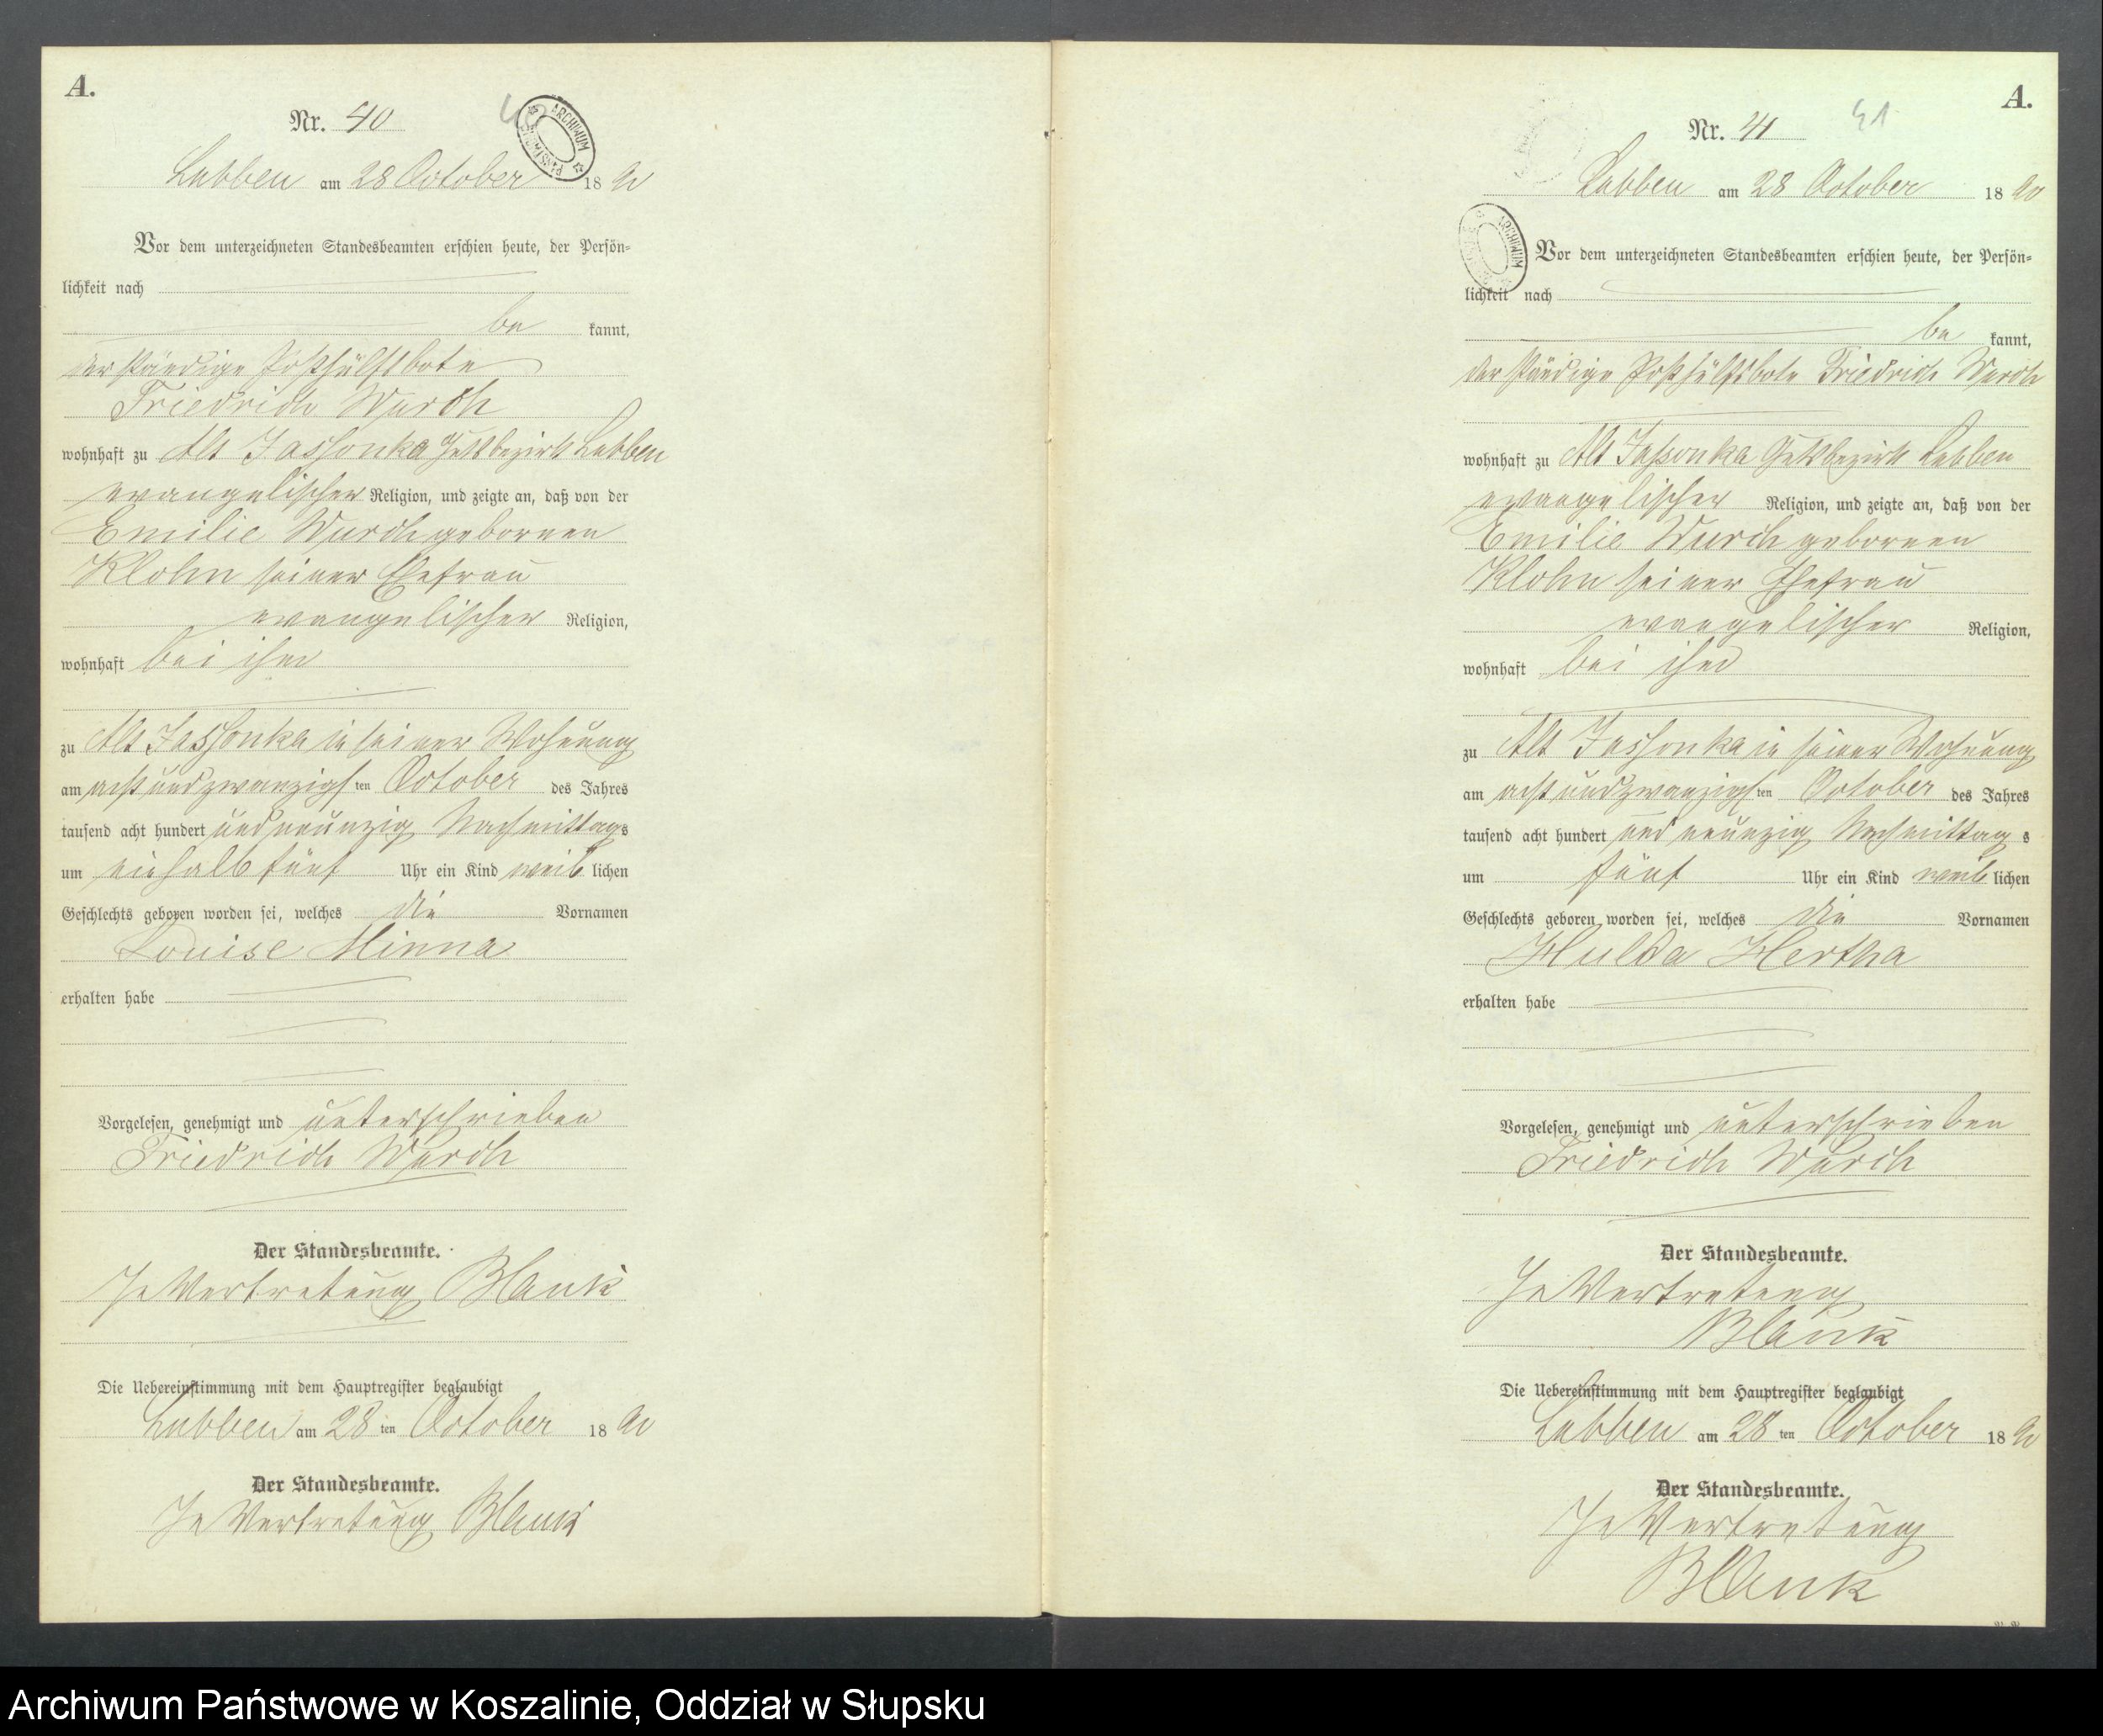 A.
Nr. 40
40
ARCHIWUM PAŃSTWOWE
Lubben am 28 October 1890
Vor dem unterzeichneten Standesbeamten erschien heute, der Persön=
lichkeit nach
be kannt,
der ständige Posthülfsbote
Friedrich Wurch
wohnhaft zu Alt Jassonka Gutsbezirk Lubben
evangelischer Religion, und zeigte an, daß von der
Emilie Wurch gebornen
Klohn seiner Ehefrau
evangelischer Religion,
wohnhaft bei ihm
zu Alt Jassonka in seiner Wohnung
am acht und zwanzigsten October des Jahres
tausend acht hundert und neunzig Nachmittags
um einhalb fünf Uhr ein Kind weiblichen
Geschlechts geboren worden sei, welches die Vornamen
Louise Minna
erhalten habe
Vorgelesen, genehmigt und unterschrieben
Friedrich Wurch
Der Standesbeamte.
In Vertretung Blank
Die Uebereinstimmung mit dem Hauptregister beglaubigt
Lubben am 28 ten October 1890
Der Standesbeamte.
In Vertretung Blank
A.
Nr. 41
41
ARCHIWUM
Lubben am 28 October 1890
Vor dem unterzeichneten Standesbeamten erschien heute, der Persön=
lichkeit nach
be kannt,
der ständige Posthülfsbote Friedrich Wurch
wohnhaft zu Alt Jassonka Gutsbezirk Lubben
evangelischer Religion, und zeigte an, daß von der
Emilie Wurch gebornen
Klohn seiner Ehefrau
evangelischer Religion,
wohnhaft bei ihm
zu Alt Jassonka in seiner Wohnung
am acht und zwanzigsten October des Jahres
tausend acht hundert und neunzig Nachmittags
um fünf Uhr ein Kind weiblichen
Geschlechts geboren worden sei, welches die Vornamen
Hulda Hertha
erhalten habe
Vorgelesen, genehmigt und unterschrieben
Friedrich Wurch
Der Standesbeamte.
In Vertretung
Blank
Die Uebereinstimmung mit dem Hauptregister beglaubigt
Lubben am 28 ten October 1890
Der Standesbeamte.
In Vertretung
Blank
Archiwum Państwowe w Koszalinie, Oddział w Słupsku